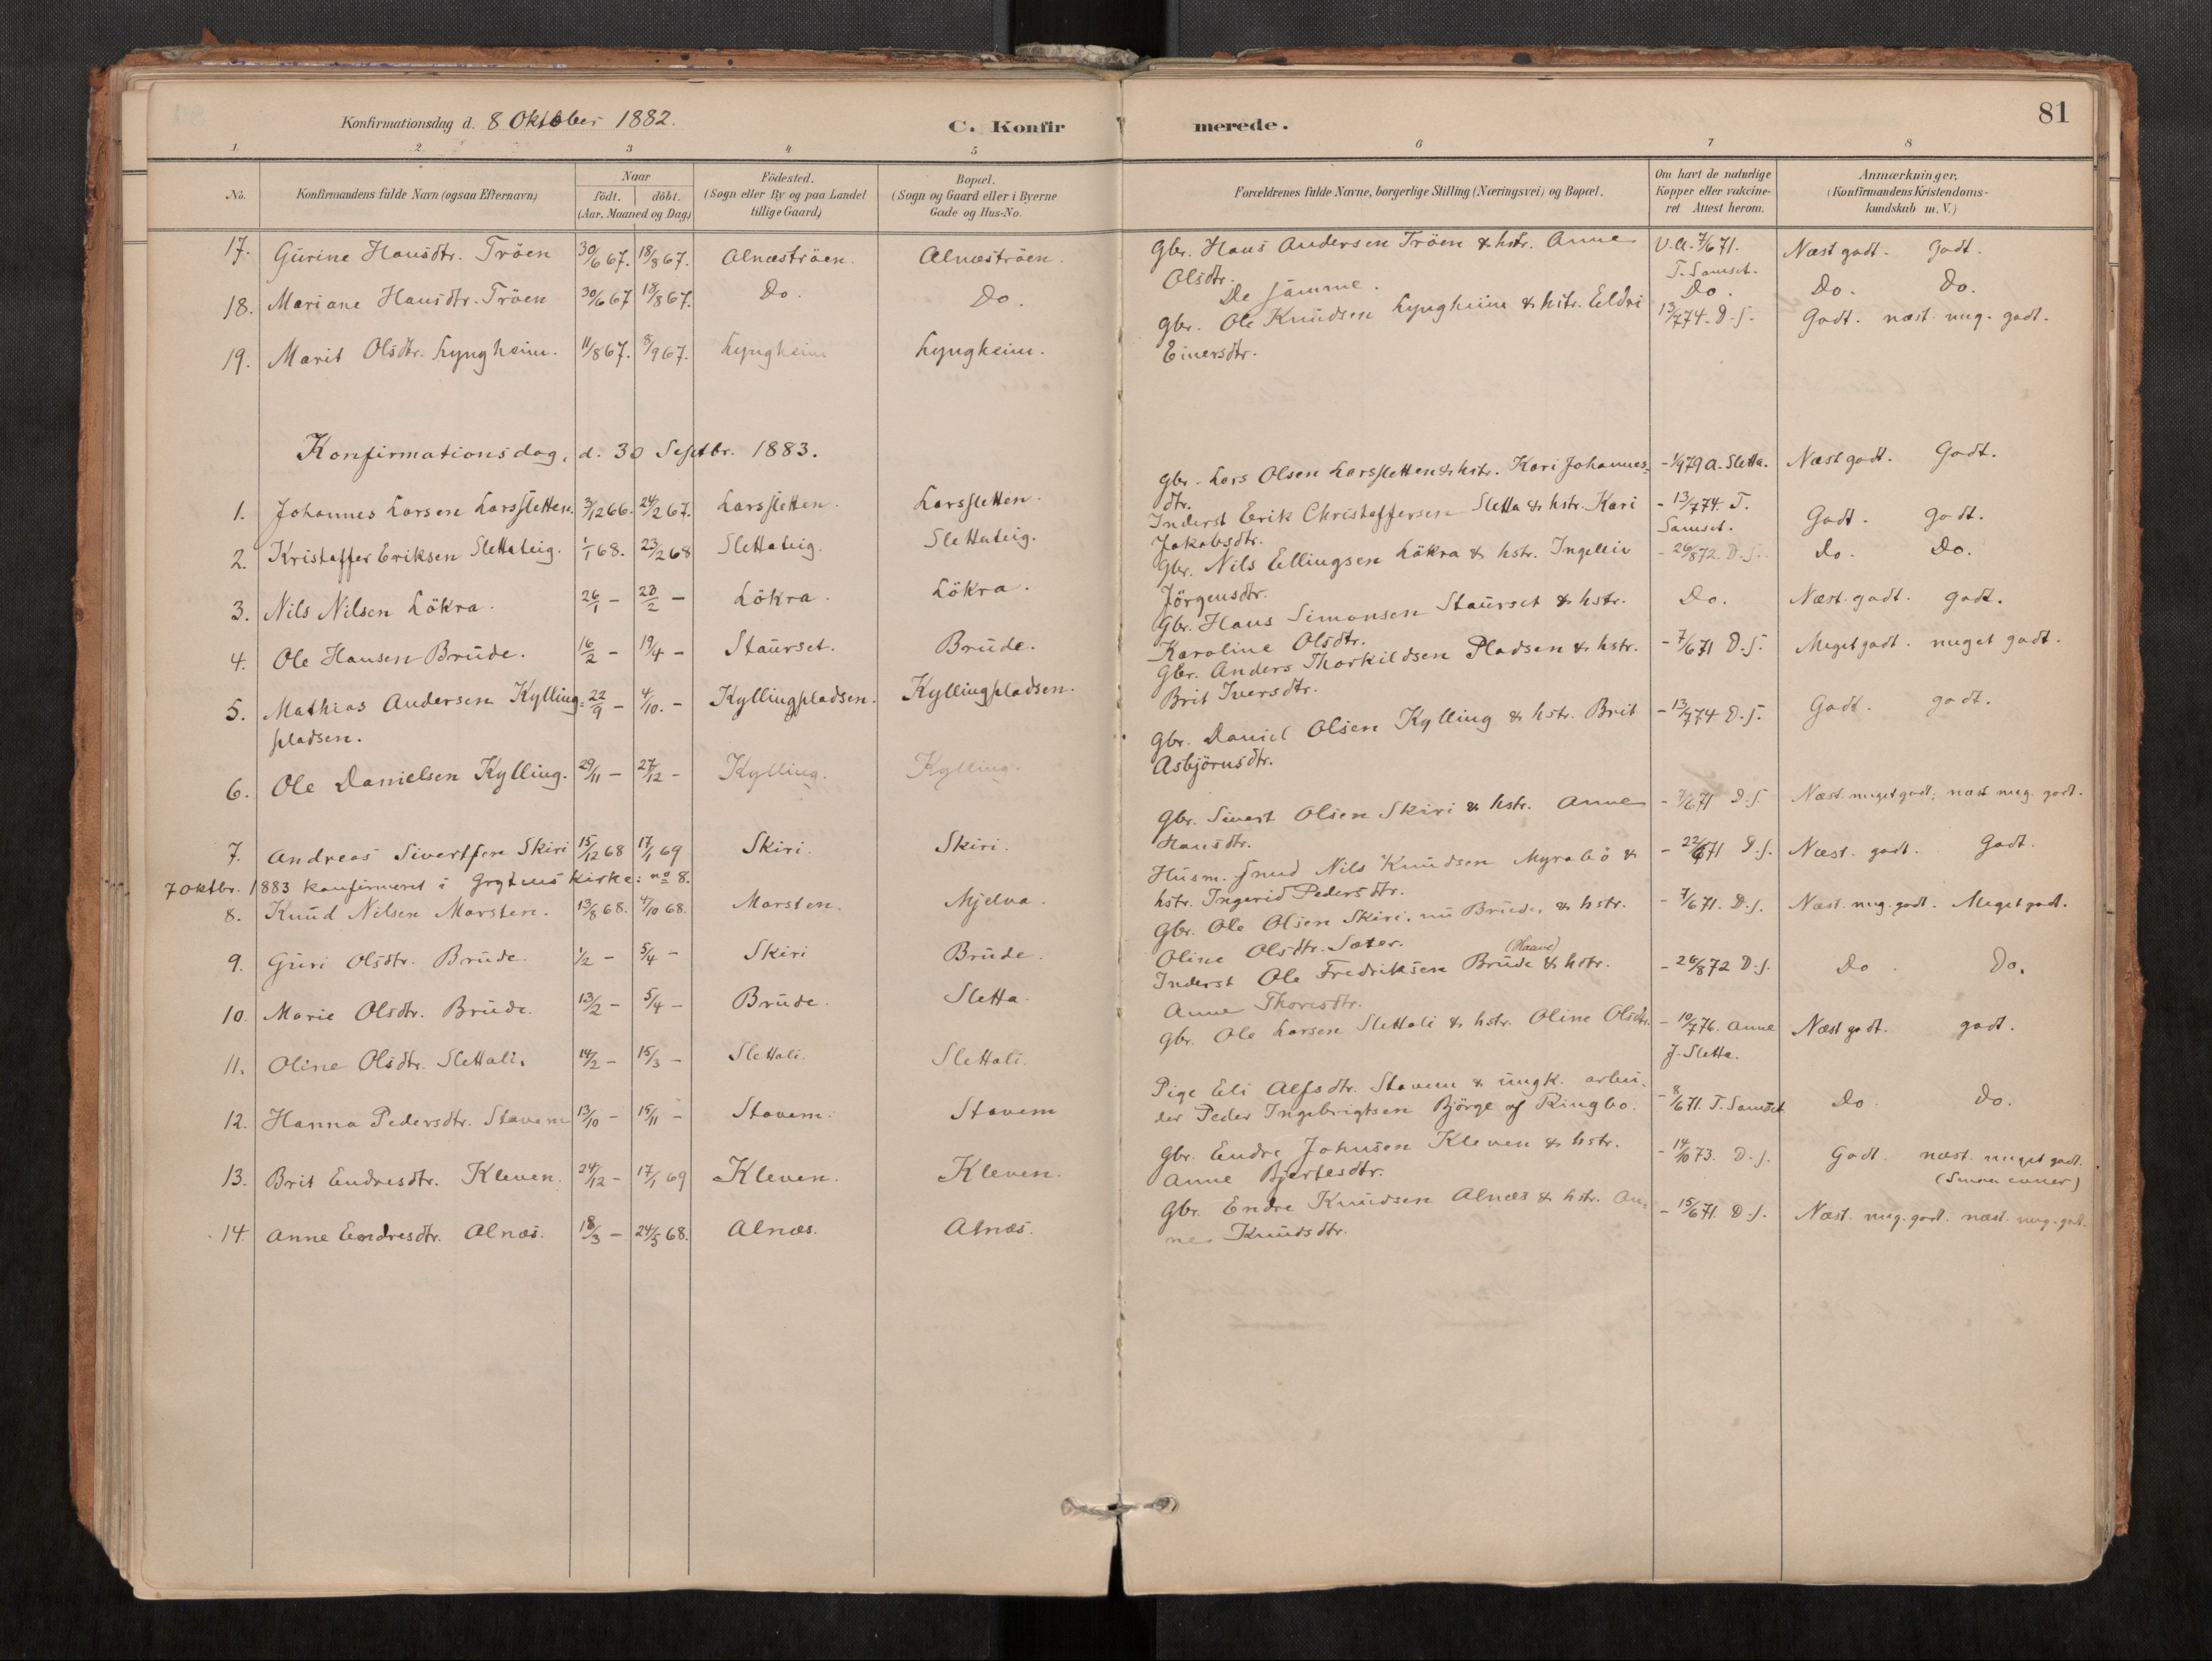 Konfirmationsdag d. 8 Oktober 1882.
C. Konfirmerede.
81
1. 2. 3 4 5 6 7 8
No.
Konfirmandens fulde Navn (ogsaa Efternavn)
Naar
födt. döbt.
(Aar, Maaned og Dag)
Födested.
(Sogn eller By og paa Landet
tillige Gaard)
Bopæl.
(Sogn og Gaard eller i Byerne
Gade og Hus-No.
Forældrenes fulde Navne, borgerlige Stilling (Næringsvei) og Bopæl.
Om havt de naturlige
Kopper eller vakcine-
ret Attest herom.
Anmærkninger.
(Konfirmandens Kristendoms-
kundskab m. V.)
17. Gurine Hansdtr. Tröen 30/6 67. 18/8 67. Alnæströen. Alnæströen. Gbr. Hans Andersen Tröen & hstr. Anne V.A. 7/6 71. Næst godt. Godt.
Olsdtr. T. Samset.
18. Mariane Hansdtr. Tröen 30/6 67 18/8 67. Do. Do. De samme. Do. Do. Do.
19. Marit Olsdtr. Lyngheim. 11/8 67. 8/9 67. Lyngheim Lyngheim. Gbr. Ole Knudsen Lyngheim & hstr. Eldri 13/7 74. D.s. Godt. næst. meg. godt.
Einersdtr.
Konfirmationsdag, d. 30 Septbr. 1883.
1. Johannes Larsen Larssletten. 3/12 66. 24/2 67. Larssletten. Larssletten. Gbr. Lars Olsen Larssletten & hstr. Kari Johannes- - 1/9 79 A. Sletta. Næst godt. Godt.
dtr.
2. Kristoffer Eriksen Slettateig. 1/1 68. 23/2 68 Slettateig. Slettateig. Inderst Erik Christoffersen Sletta & hstr. Kari - 13/7 74. T. Godt. godt.
Jakobsdtr. Samset.
3. Nils Nilsen Lökra. 26/1 - 23/2 - Lökra. Lökra. Gbr. Nils Ellingsen Lökra & hstr. Ingeliv - 26/8 72. D.s. Do. Do.
Jörgensdtr.
4. Ole Hansen Brude. 16/2 - 19/4 - Staurset. Brude. Gbr. Hans Simonsen Staurset & hstr. Do. Næst. godt. godt.
Karoline Olsdtr.
5. Mathias Andersen Kylling- 22/9 - 4/10. - Kyllingpladsen. Kyllingpladsen. Gbr. Anders Thorkildsen Pladsen & hstr. - 7/6 71 D.s. Meget godt. meget godt.
pladsen. Brit Iversdtr.
6. Ole Danielsen Kylling. 29/11 - 27/12 - Kylling. Kylling. Gbr. Daniel Olsen Kylling & hstr. Brit - 13/7 74 D.s. Godt. godt.
Asbjörnsdtr.
7. Andreas Sivertsen Skiri 15/12 68 17/1 69 Skiri. Skiri. Gbr. Sivert Olsen Skiri & hstr. Anne - 7/6 71 D.s. Næst. meget godt. næst meg. godt.
Hansdtr.
7 oktbr. 1883 konfirmeret i Grytens Kirke: no 8.
8. Knud Nilsen Marsten. 13/8 68. 4/10 68. Marsten. Mjelva. Husm. smed Nils Knudsen Myrabö & - 22/6 71 D.s. Næst. godt. Godt.
hstr. Ingerid Pedersdtr.
9. Guri Olsdtr. Brude. 1/2 - 5/4 - Skiri Brude. Gbr. Ole Olsen Skiri, nu Brude, & hstr. - 7/6 71. D.s. Næst. meg. godt. Meget godt.
Oline Olsdtr. Sæter.
10. Marie Olsdtr. Brude. 13/2 - 5/4 - Brude. Sletta. Inderst Ole Fredriksen Brude (Haave) & hstr. - 26/8 72 D.s. Do. Do.
Anne Thoresdtr.
11. Oline Olsdtr. Slettali. 14/2 - 15/3 - Slettali. Slettali. Gbr. Ole Larsen Slettali & hstr. Oline Olsdtr. - 10/7 76. Anne Næst godt. godt.
J. Sletta.
12. Hanna Pedersdtr. Stavem 13/10 - 15/11 - Stavem. Stavem Pige Eli Alfsdtr. Stavem & ungk. arbei- - 8/6 71. T. Samset Do. Do.
der Peder Ingebrigtsen Bjørge af Ringbo.
13. Brit Endresdtr. Kleven. 24/12 - 17/1 69 Kleven. Kleven. Gbr. Endre Johnsen Kleven & hstr. - 14/10 73. D.s. Godt. næst. meget godt.
Anne Bjertesdtr.
14. Anne Endresdtr. Alnæs. 18/3 - 24/5 68. Alnæs. Alnæs. Gbr. Endre Knudsen Alnæs & hstr. An- - 15/6 71. D.s. Næst. meg. godt. næst. meg. godt.
ne Knudsdtr.